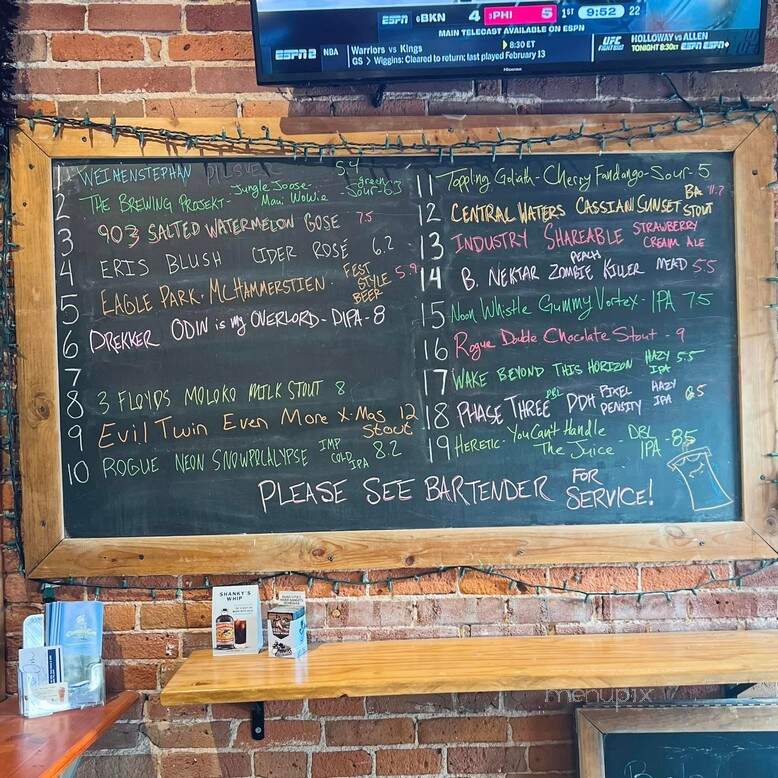 ESPN BKN 4 PHI 5 1ST 9:52 22
MAIN TELECAST AVAILABLE ON ESPN
ESPN2 NBA Warriors vs Kings 8:30 ET
GS > Wiggins: Cleared to return; last played February 13
UFC HOLLOWAY vs ALLEN
TONIGHT 8:30ET ESPN ESPN+
Hisense
1 WEIHENSTEPHAN PILSNER 5.4
2 THE BREWING PROJEKT - Jungle Joose - Maui Wowie green Sour - 6.3
3 903 SALTED WATERMELON GOSE 7.5
4 ERIS BLUSH CIDER ROSÉ 6.2
5 EAGLE PARK - McHAMMERSTIEN - FEST STYLE BEER 5.9
6 DREKKER ODIN is my OVERLORD - DIPA - 8
7
8 3 FLOYDS MOLOKO MILK STOUT 8
9 Evil Twin Even More X-Mas Stout 12
10 ROGUE NEON SNOWPOCALYPSE IMP COLD IPA 8.2
11 Toppling Goliath - Cherry Fandango - Sour - 5
12 CENTRAL WATERS CASSIAN SUNSET BA STOUT 11.7
13 INDUSTRY SHAREABLE STRAWBERRY CREAM ALE
14 B. NEKTAR PEACH ZOMBIE KILLER MEAD 5.5
15 Noon Whistle Gummy Vortex - IPA 7.5
16 Rogue Double Chocolate Stout - 9
17 WAKE BEYOND THIS HORIZON HAZY IPA 5.5
18 PHASE THREE DBL DDH PIXEL DENSITY HAZY IPA 8.5
19 HERETIC - You Can't Handle The Juice - DBL IPA - 8.5
PLEASE SEE BARTENDER FOR SERVICE!
SHANKY'S WHIP
menupix